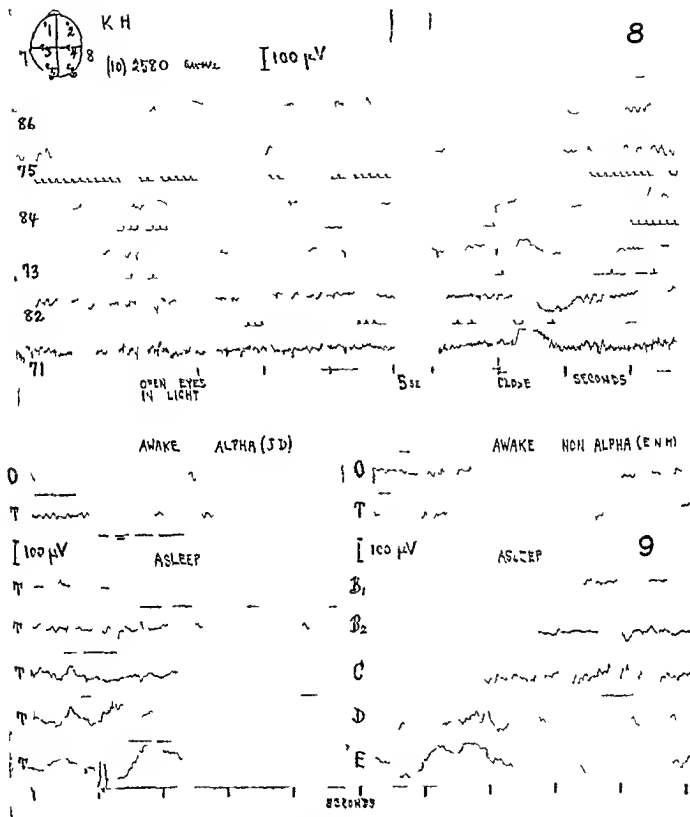 KH
8
1 2
7 3 4 8
5 6
(10) 2580
100 µV
86
75
84
73
82
71
OPEN EYES
IN LIGHT
5 SE
CLOSE
SECONDS
AWAKE ALPHA (JD)
AWAKE NON ALPHA (ENM)
O
O
T
T
100 µV
ASLEEP
100 µV
ASLEEP
9
T
B1
T
B2
T
C
T
D
T
E
SECONDS